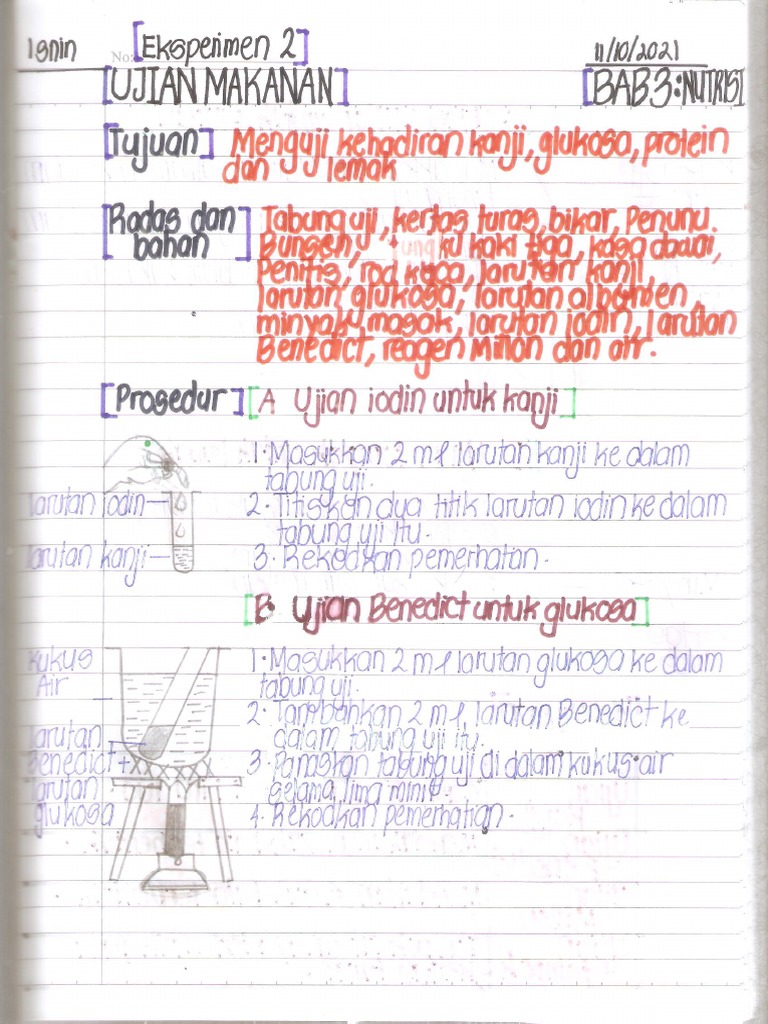 Isnin
No:
[Eksperimen 2]
11/10/2021
[UJIAN MAKANAN]
[BAB 3: NUTRISI
[Tujuan] Menguji kehadiran kanji, glukosa, protein
dan lemak
[Radas dan bahan] Tabung uji, kertas turas, bikar, Penunu
Bunsen, tungku kaki tiga, kasa dawai,
Penitis, rod kaca, larutan kanji,
larutan glukosa, larutan albumen,
minyak masak, larutan iodin, larutan
Benedict, reagen Millon dan air.
[Prosedur] [A Ujian iodin untuk kanji]
1. Masukkan 2 ml larutan kanji ke dalam
tabung uji.
larutan iodin
2. Titiskan dua titik larutan iodin ke dalam
tabung uji itu.
larutan kanji
3. Rekodkan pemerhatan.
[B. Ujian Benedict untuk glukosa]
kukus
Air
1. Masukkan 2 ml larutan glukosa ke dalam
tabung uji.
2. Tambahkan 2 ml larutan Benedict ke
dalam tabung uji itu.
larutan
Benedict +
larutan
glukosa
3. Panaskan tabung uji di dalam kukus air
selama lima minit.
4. Rekodkan pemerhatian.